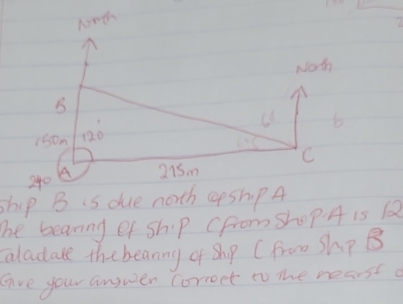 North
North
B
150m
120°
A
240
215m
C
Ship B is due north of ship A
The bearing of ship C from Shop A is 12
Calculate the bearing of ship C from Ship B
Give your answer correct to the nearst